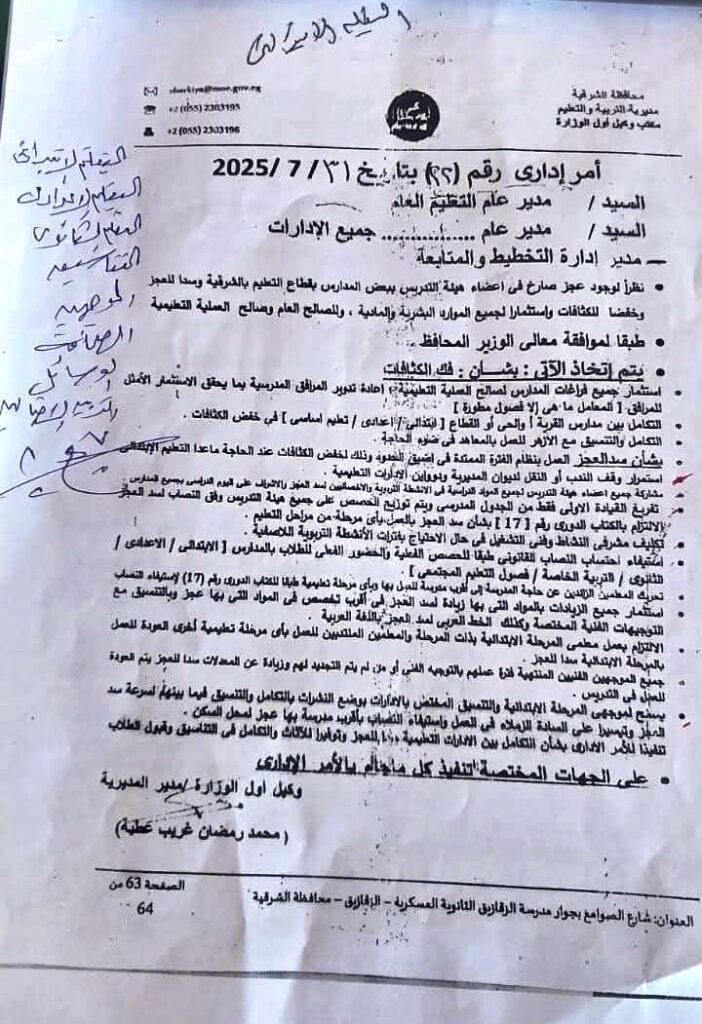 محافظة الشرقية
مديرية التربية والتعليم
مكتب وكيل أول الوزارة
sharkiya@moe.gov.eg
+2 (055) 2303195
+2 (055) 2303196
أمر إدارى رقم (٢٢) بتاريخ ٣١/ 7 /2025
السيد / مدير عام التعليم العام
السيد / مدير عام .................. جميع الإدارات
– مدير إدارة التخطيط والمتابعة
• نظرا لوجود عجز صارخ فى اعضاء هيئة التدريس ببعض المدارس بقطاع التعليم بالشرقية وسدا للعجز
وخفضا للكثافات وإستثمارا لجميع الموارد البشرية والمادية ، وللصالح العام وصالح العملية التعليمية
• طبقا لموافقة معالى الوزير المحافظ
• يتم إتخاذ الآتى : بشان : فك الكثافات
• استثمار جميع فراغات المدارس لصالح العملية التعليمية ، اعادة تدوير المرافق المدرسية بما يحقق الاستثمار الأمثل
للمرافق . [ المعامل ما هى إلا فصول مطورة ]
• التكامل بين مدارس القرية أو الحى أو القطاع [ ابتدائى / اعدادى / تعليم اساسى ] فى خفض الكثافات .
• التكامل والتنسيق مع الأزهر للعمل بالمعاهد فى ضوء الحاجة .
• بشأن سد العجز العمل بنظام الفترة الممتدة فى اضيق الحدود وذلك لخفض الكثافات عند الحاجة ماعدا التعليم الابتدائى
• استمرار وقف الندب أو النقل لديوان المديرية ودواوين الادارات التعليمية .
• مشاركة جميع اعضاء هيئة التدريس لجميع المواد الدراسية فى الانشطة التربوية والاخصائيين لسد العجز والاشراف على اليوم الدراسى بجميع المدارس
• تفريغ القيادة الاولى فقط من الجدول المدرسى ويتم توزيع الحصص على جميع هيئة التدريس وفق النصاب لسد العجز
• الالتزام بالكتاب الدورى رقم [ 17 ] بشأن سد العجز بالعمل بأى مرحلة من مراحل التعليم .
• تكليف مشرفى النشاط وفنى التشغيل فى حال الاحتياج بفترات الأنشطة التربوية اللاصفية .
• إستيفاء احتساب النصاب القانونى طبقا للحصص الفعلية والحضور الفعلى للطلاب بالمدارس [ الابتدائى / الاعدادى /
الثانوى / التربية الخاصة / فصول التعليم المجتمعى ] .
• تحريك المعلمين الزائدين عن حاجة المدرسة إلى أقرب مدرسة للعمل بها وبأى مرحلة تعليمية طبقا للكتاب الدورى رقم (17) لإستيفاء النصاب
• استثمار جميع الزيادات بالمواد التى بها زيادة لسد العجز فى أقرب تخصص فى المواد التى بها عجز وبالتنسيق مع
التوجيهات الفنية المختصة وكذلك الخط العربى لسد العجز باللغة العربية .
• الالتزام بعمل معلمى المرحلة الابتدائية بذات المرحلة والمعلمين المنتدبين للعمل بأى مرحلة تعليمية أخرى العودة للعمل
بالمرحلة الابتدائية سدا للعجز .
• جميع الموجهين الفنيين المنتهية فترة عملهم بالتوجيه الفنى أو من لم يتم التجديد لهم وزيادة عن المعدلات سدا للعجز يتم العودة
للعمل فى التدريس .
• يسمح لموجهى المرحلة الابتدائية والتنسيق المختص بالادارات بوضع النشرات بالتكامل والتنسيق فيما بينهم لسرعة سد
العجز وتيسيرا على السادة الزملاء فى العمل واستيفاء النصاب بأقرب مدرسة بها عجز لمحل السكن .
تنفيذا للأمر الادارى بشأن التكامل بين الادارات التعليمية للعجز وتوفيرا للأثاث والتكامل فى التناسيق وقبول الطلاب
• على الجهات المختصة تنفيذ كل ماجاء بالأمر الإدارى
وكيل أول الوزارة / مدير المديرية
( محمد رمضان غريب عطية )
التعليم الابتدائى
التعليم الاعدادى
التعليم الثانوى
الموجهين
الوسائل
العنوان: شارع الصوامع بجوار مدرسة الزقازيق الثانوية العسكرية – الزقازيق – محافظة الشرقية
الصفحة 63 من
64